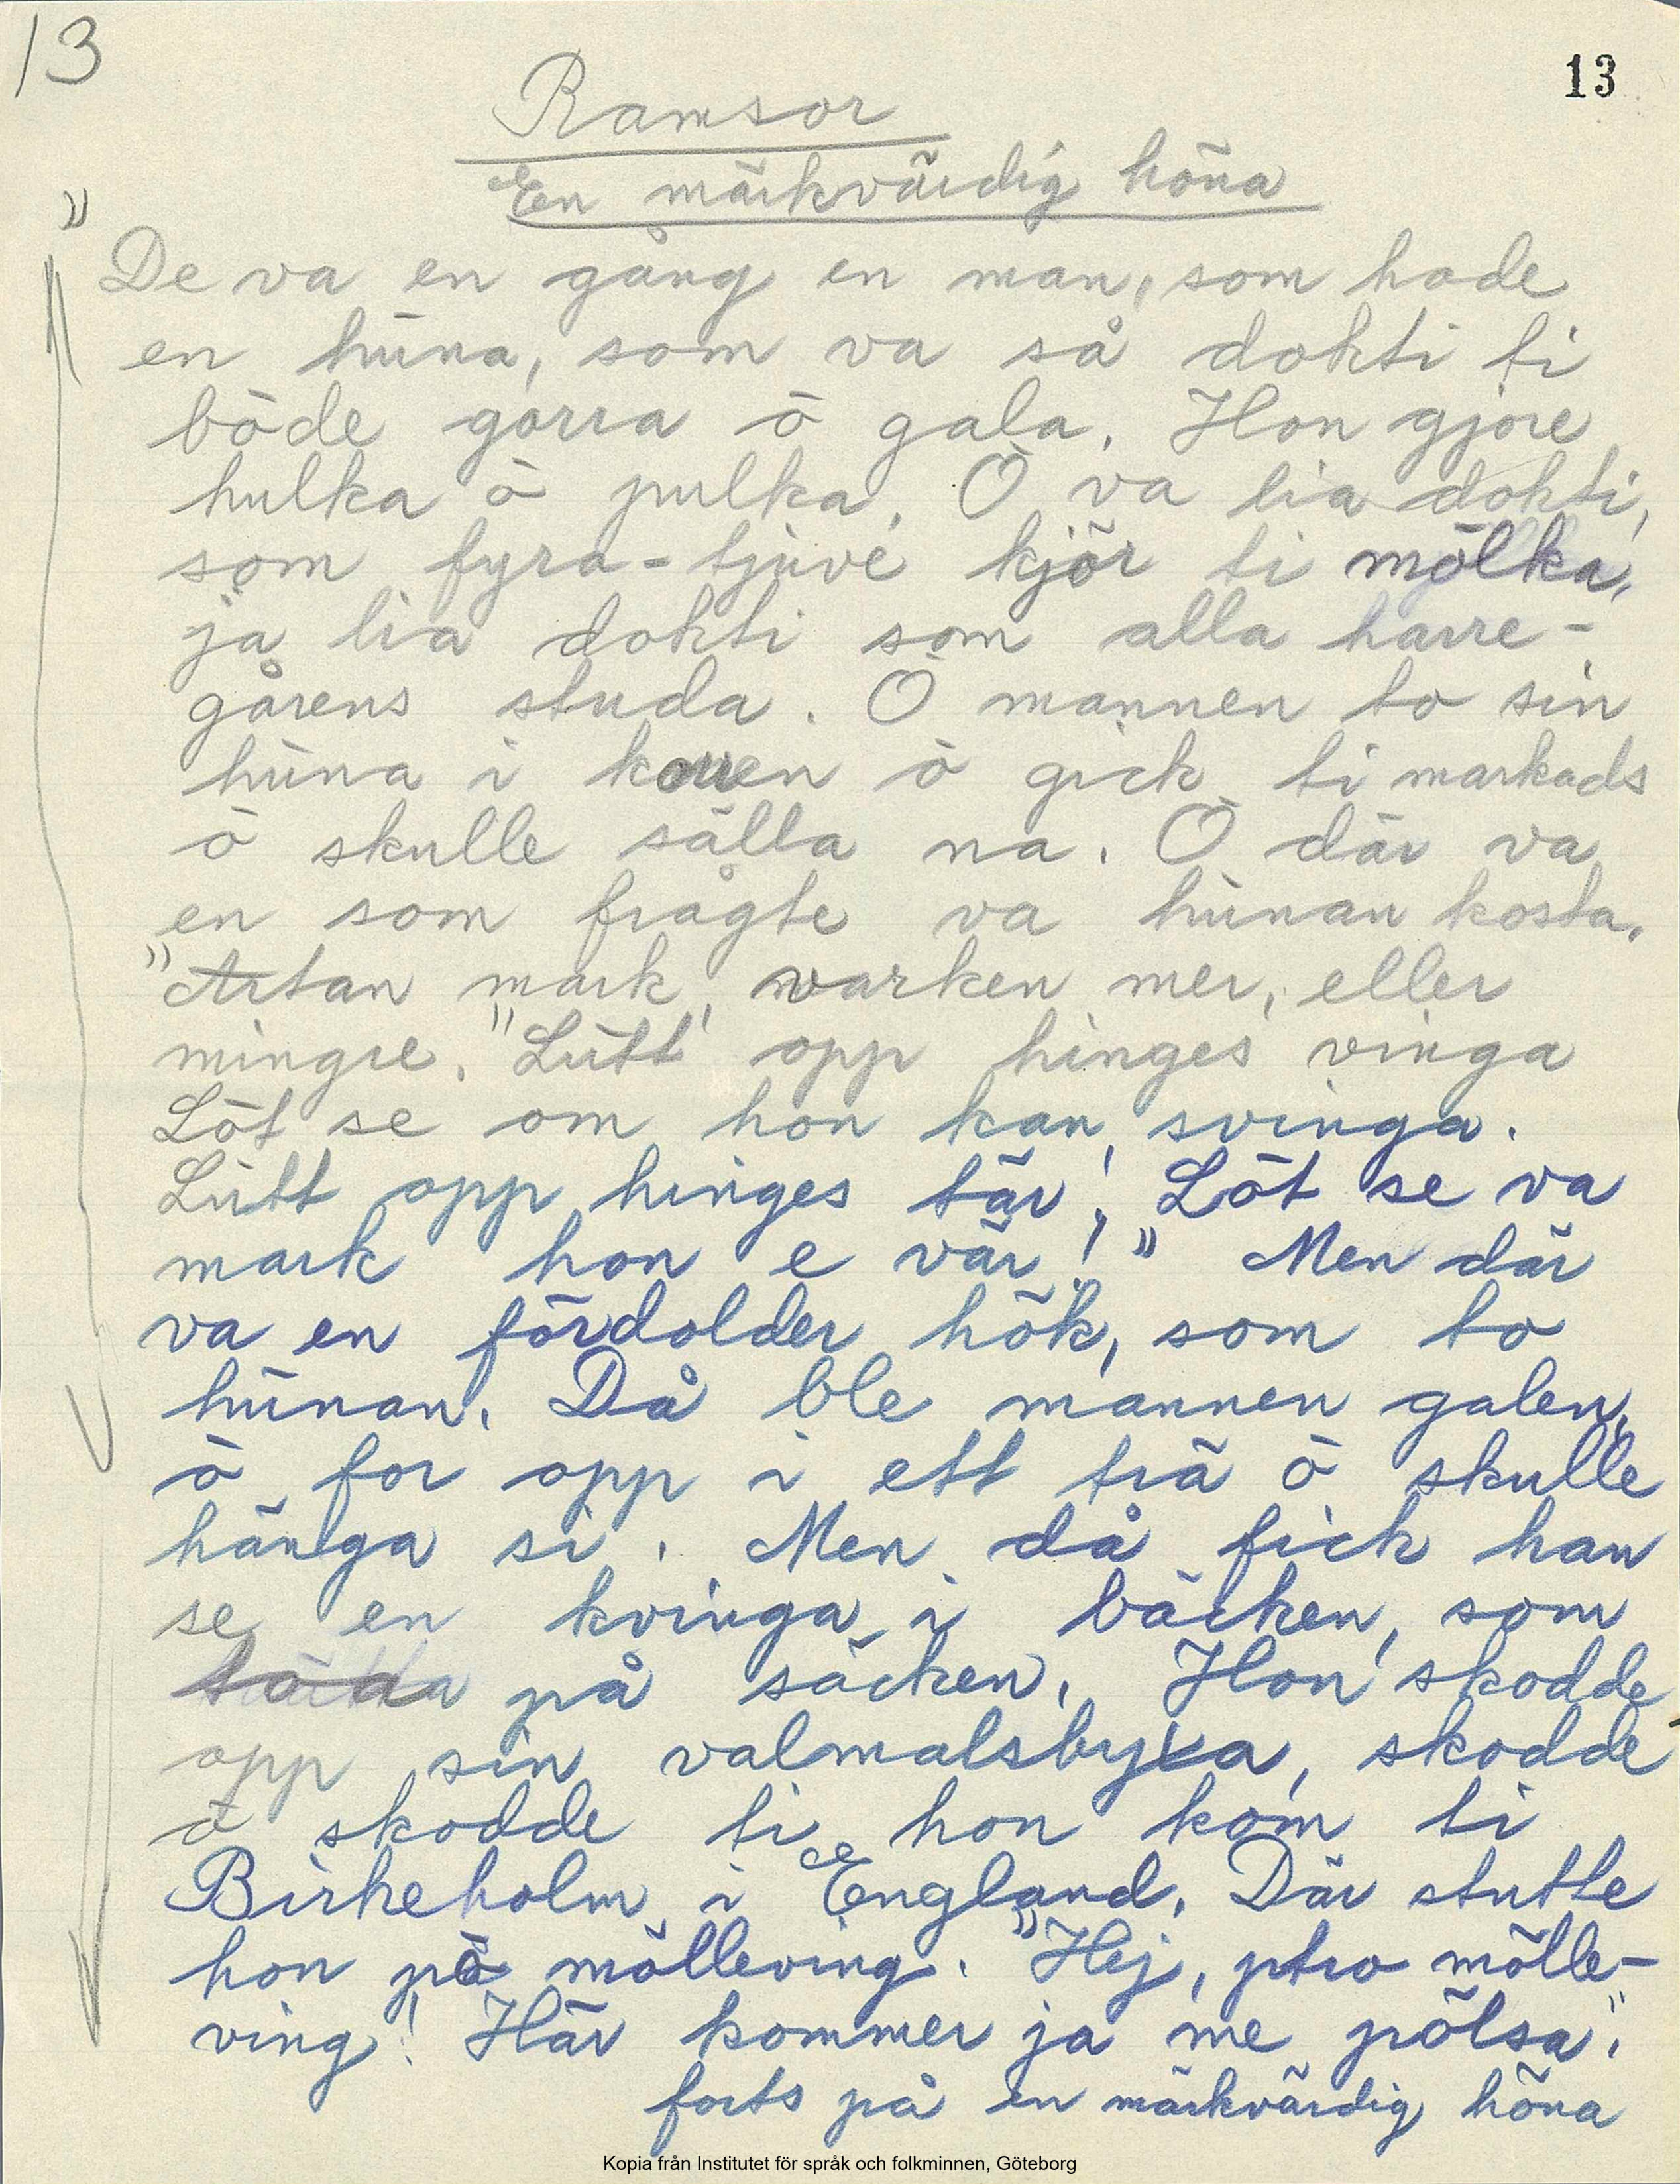 13
13
Ramsor
En märkvärdig höna
"
De va en gång en man, som hade
en hüna, som va så dokti ti
både gorra ö gala. Hon gjore
hulka ö pulka. Ö va lia dokti,
som fyra-tjuve kjör ti mölka,
ja lia dokti som alla harre-
gårens studa. Ö mannen to sin
hüna i korren ö gick ti markads
ö skulle sälla na. Ö där va
en som frågte va hünan kosta.
"Artan mark, varken mer, eller
mingre." Lütt opp hinges vinga
Löt se om hon kan svinga.
Lütt opp hinges tär! Löt se va
mark hon e vär!" Men där
va en fördolder hök, som to
hünan. Då ble mannen galen,
ö for opp i ett trä ö skulle
hänga si. Men då fick han
se en kvinga i bäcken, som
på säcken. Hon skodde
opp sin valmalsbyxa, skodde
ö skodde ti hon kom ti
Birkeholm i England. Där stutte
hon på mölleving. "Hej, ptro mölle-
ving! Här kommer ja me pölsa".
forts på en märkvärdig höna
Kopia från Institutet för språk och folkminnen, Göteborg